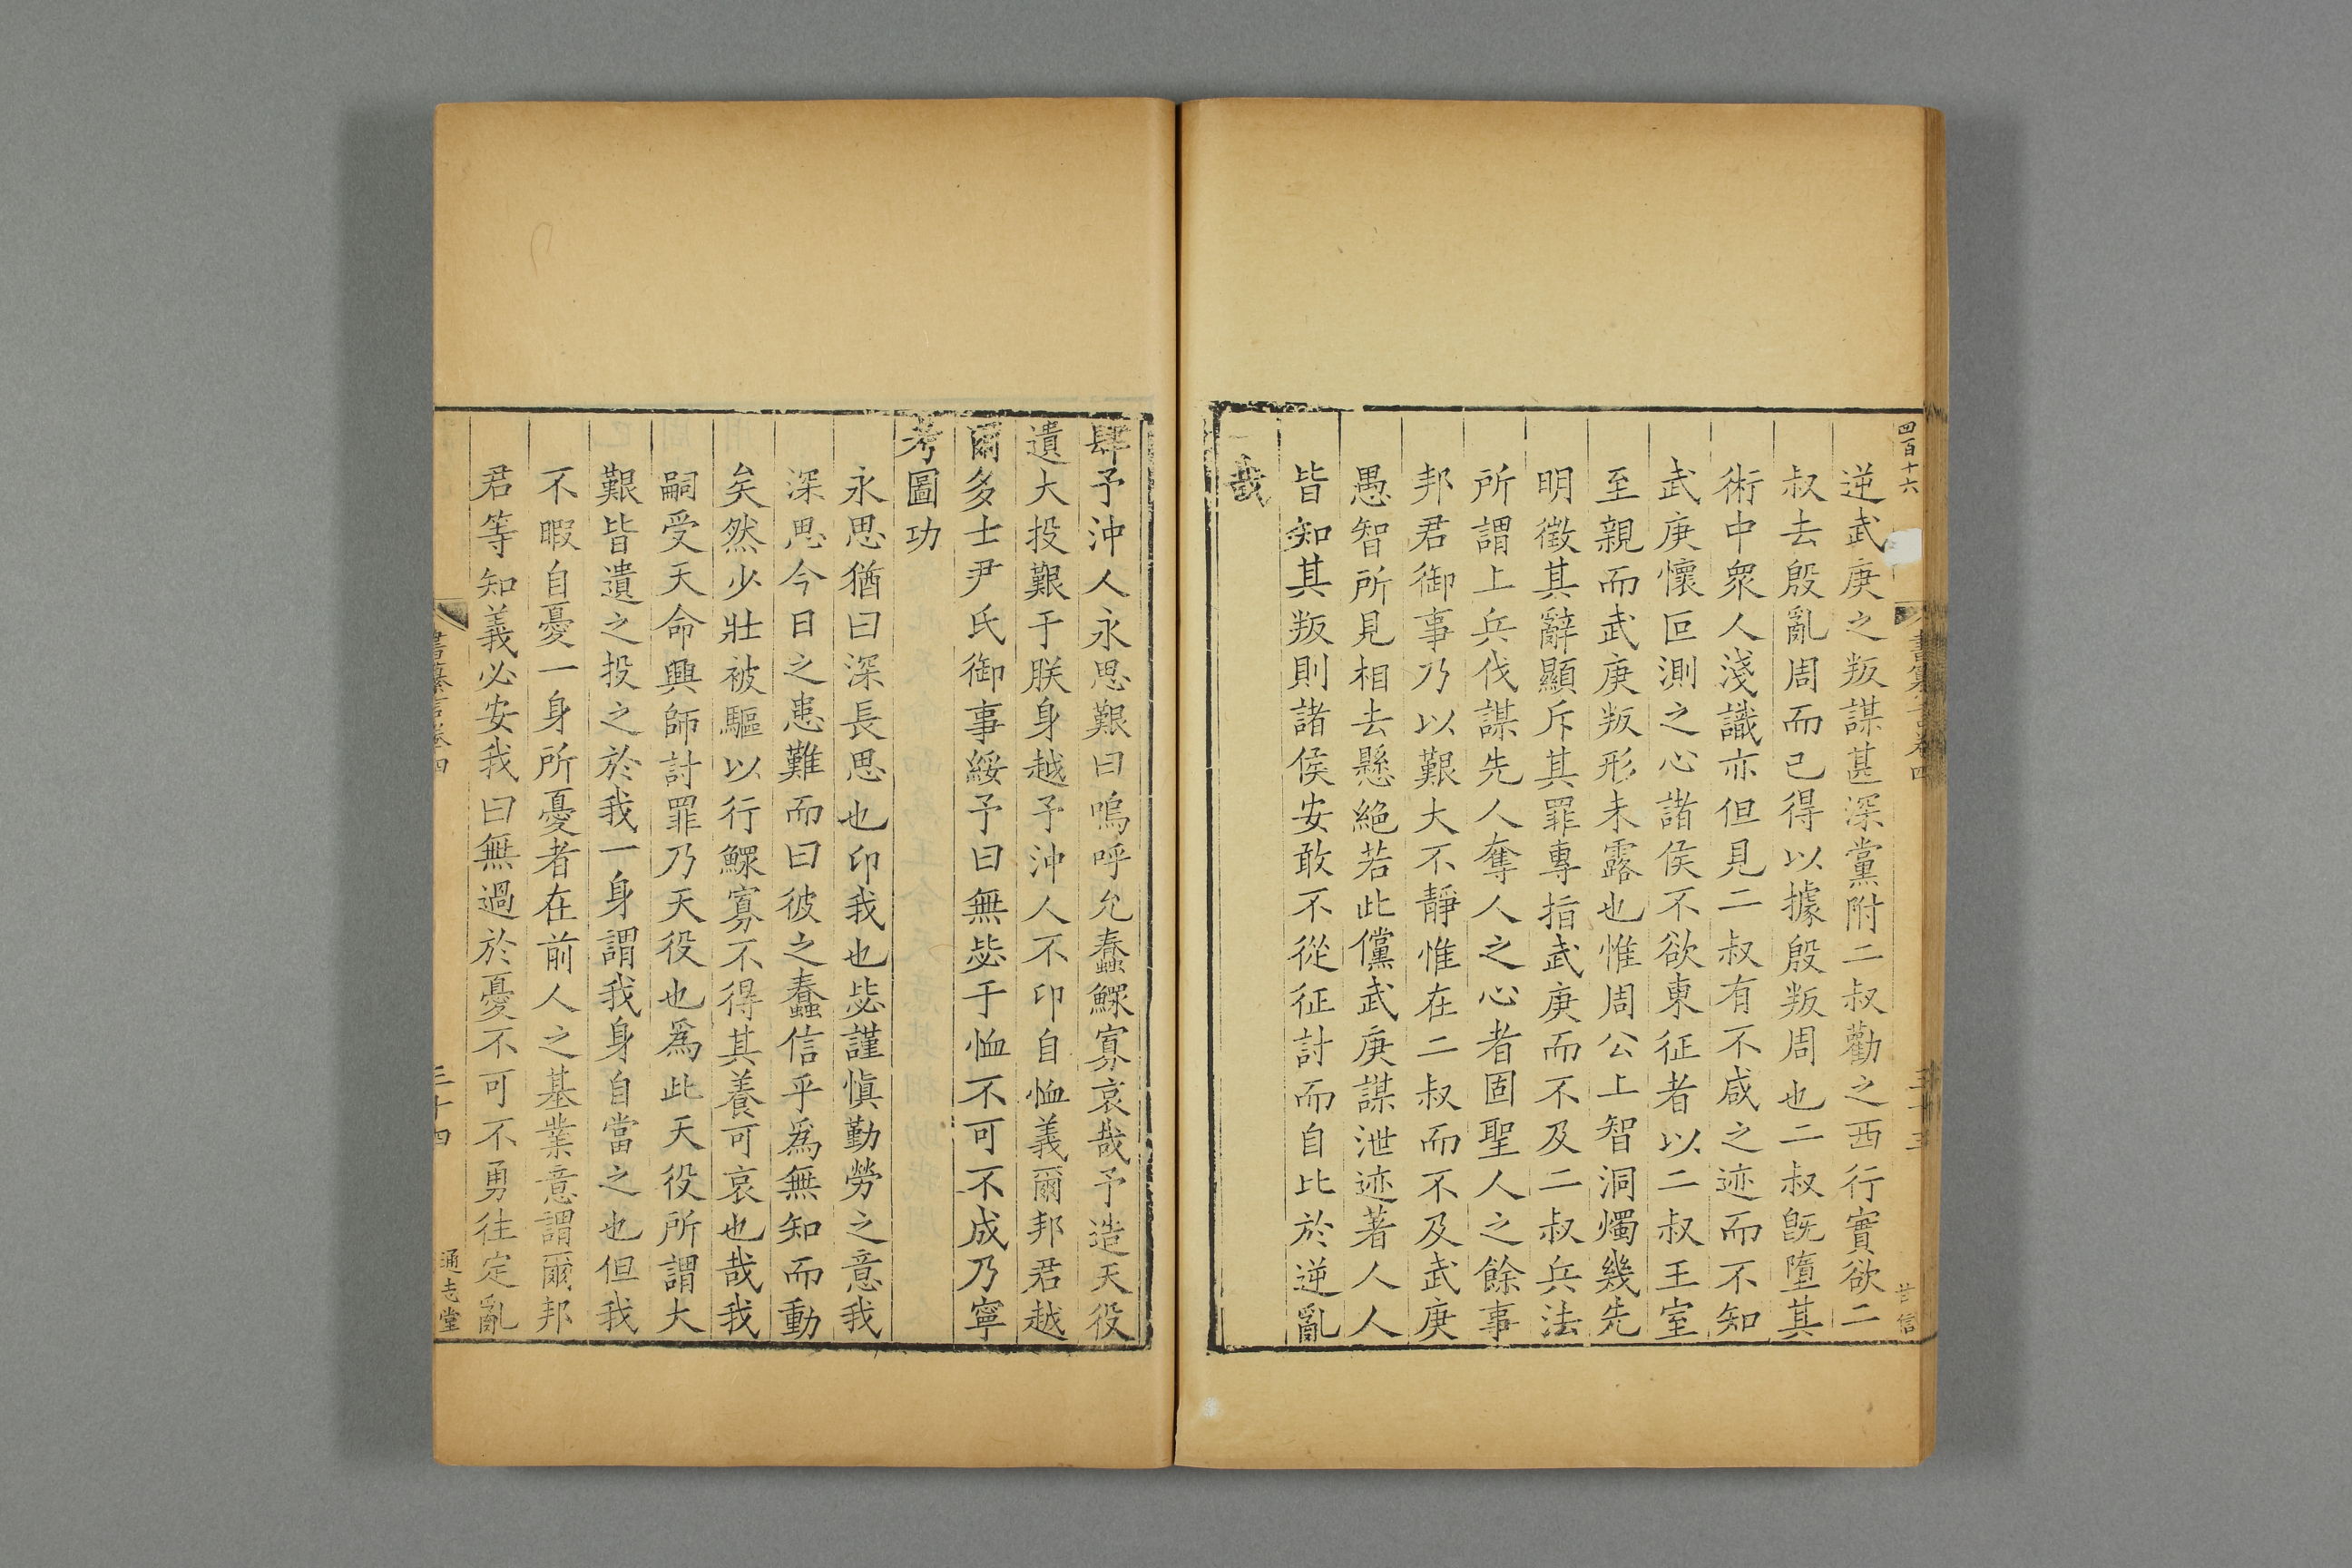 四百十六
書纂言卷四
三十三
甘信
逆武庚之叛謀甚深黨附二叔勸之西行實欲二
叔去殷亂周而已得以據殷叛周也二叔旣墮其
術中衆人淺識亦但見二叔有不咸之迹而不知
武庚懷叵測之心諸侯不欲東征者以二叔王室
至親而武庚叛形未露也惟周公上智洞燭幾先
明徵其辭顯斥其罪專指武庚而不及二叔兵法
所謂上兵伐謀先人奪人之心者固聖人之餘事
邦君御事乃以艱大不靜惟在二叔而不及武庚
愚智所見相去懸絕若此儻武庚謀泄迹著人人
皆知其叛則諸侯安敢不從征討而自比於逆亂
哉
肆予沖人永思艱曰嗚呼允蠢鰥寡哀哉予造天役
遺大投艱于朕身越予沖人不卬自恤義爾邦君越
爾多士尹氏御事綏予曰無毖于恤不可不成乃寧
考圖功
永思猶曰深長思也卬我也毖謹愼勤勞之意我
深思今日之患難而曰彼之蠢信乎爲無知而動
矣然少壯被驅以行鰥寡不得其養可哀也哉我
嗣受天命興師討罪乃天役也爲此天役所謂大
艱皆遺之投之於我一身謂我身自當之也但我
不暇自憂一身所憂者在前人之基業意謂爾邦
君等知義必安我曰無過於憂不可不勇往定亂
書纂言卷四
三十四
通志堂